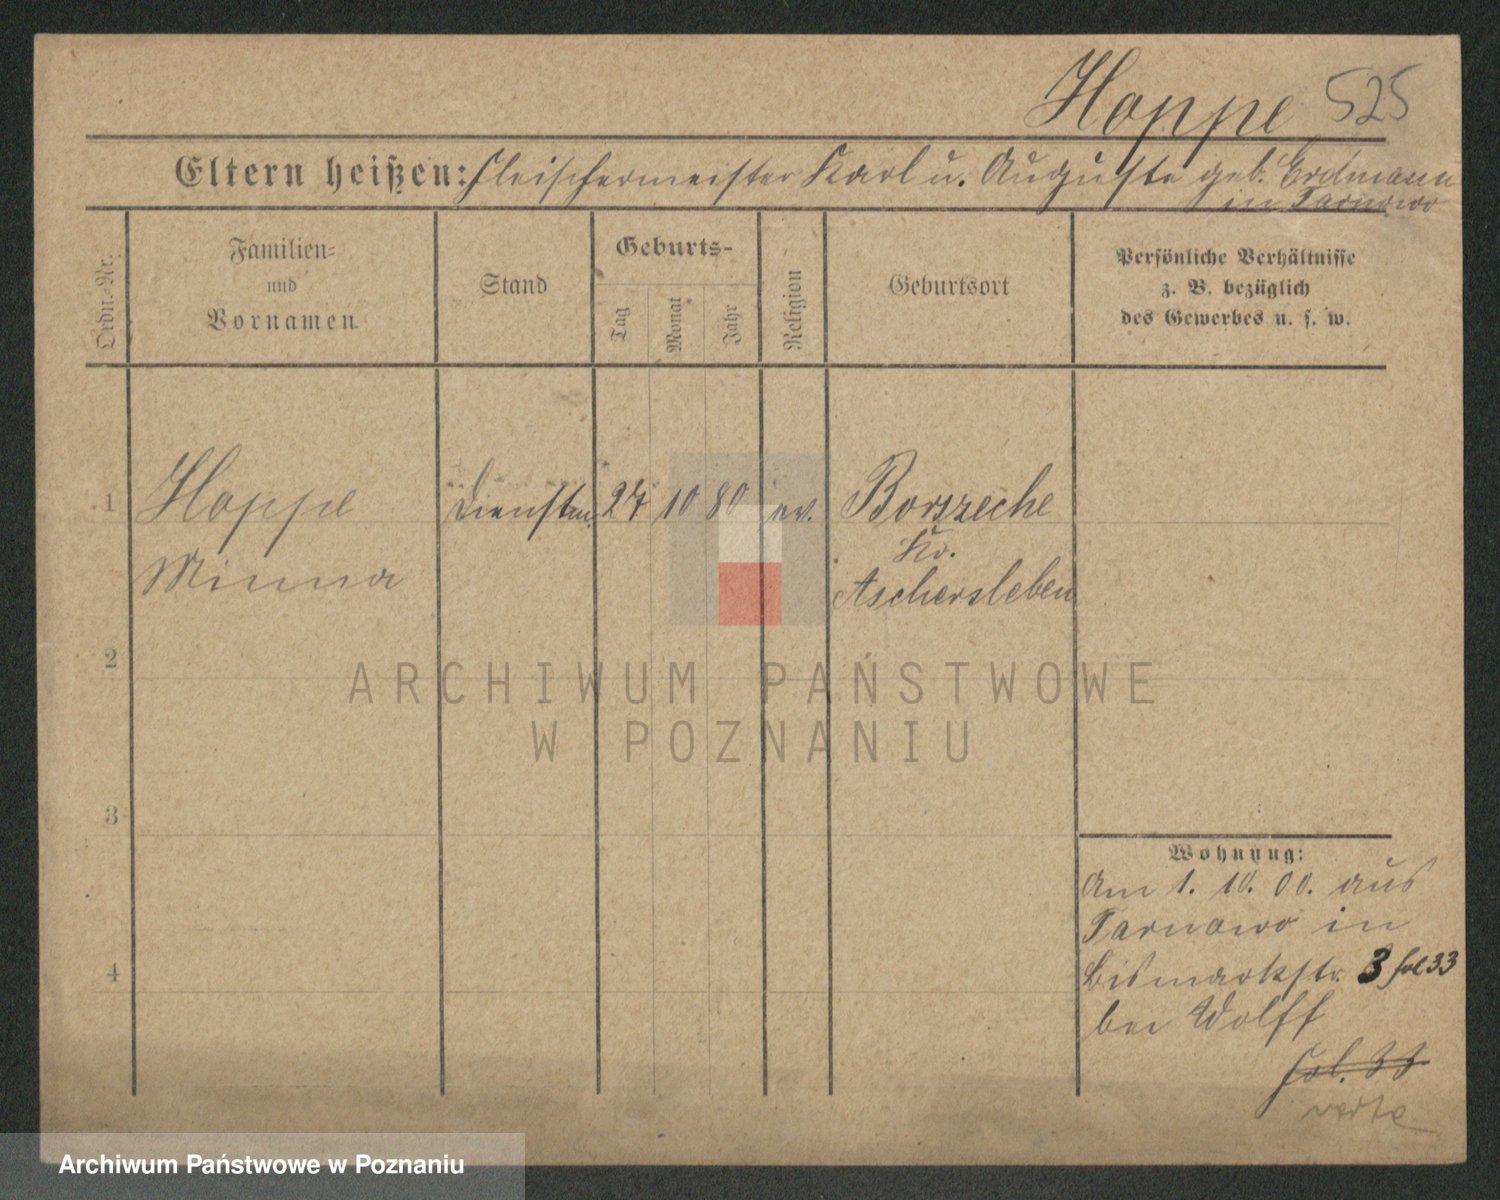 Hoppe 525
Eltern heißen: Fleischermeister Karl u. Auguste geb. Erdmann
in Tarnowo
Ordn.-Nr.
Familien-
und
Vornamen
Stand
Geburts-
Tag
Monat
Jahr
Religion
Geburtsort
Persönliche Verhältnisse
z. B. bezüglich
des Gewerbes u. s. w.
1 Hoppe Dienstm. 27 10 80 ev. Borszeche
Kr.
Minna Aschersleben
2
ARCHIWUM PAŃSTWOWE
W POZNANIU
3
Wohnung:
Am 1. 10. 00. aus
Tarnowo in
4 Bismarkstr. 3 fol 33
bei Wolff
fol. 33
verte
Archiwum Państwowe w Poznaniu